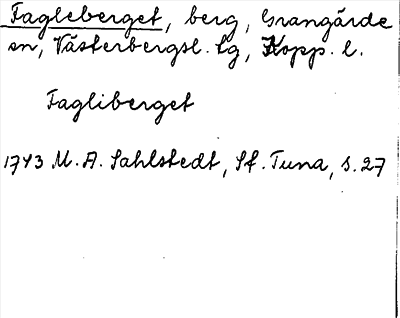 Fagleberget, berg, Grangärde
sn, Västerbergsl. lg, Kopp. l.
Fagliberget
1743 M. A. Sahlstedt, St. Tuna, s. 27